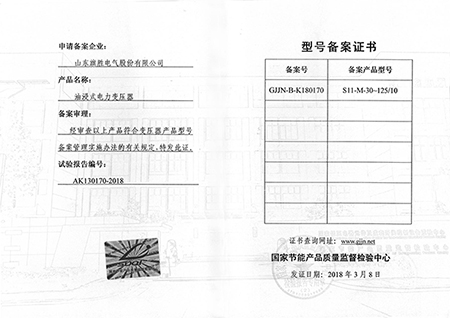 申请备案企业:
山东旗胜电气股份有限公司
产品名称:
油浸式电力变压器
备案审理:
经审查以上产品符合变压器产品型号
备案管理实施办法的有关规定,特发此证。
试验报告编号:
AK130170-2018
型号备案证书
备案号 备案产品型号
GJJN-B-K180170 S11-M-30~125/10
证书查询网址: www.gjjn.net
国家节能产品质量监督检验中心
发证日期: 2018 年 3 月 8 日